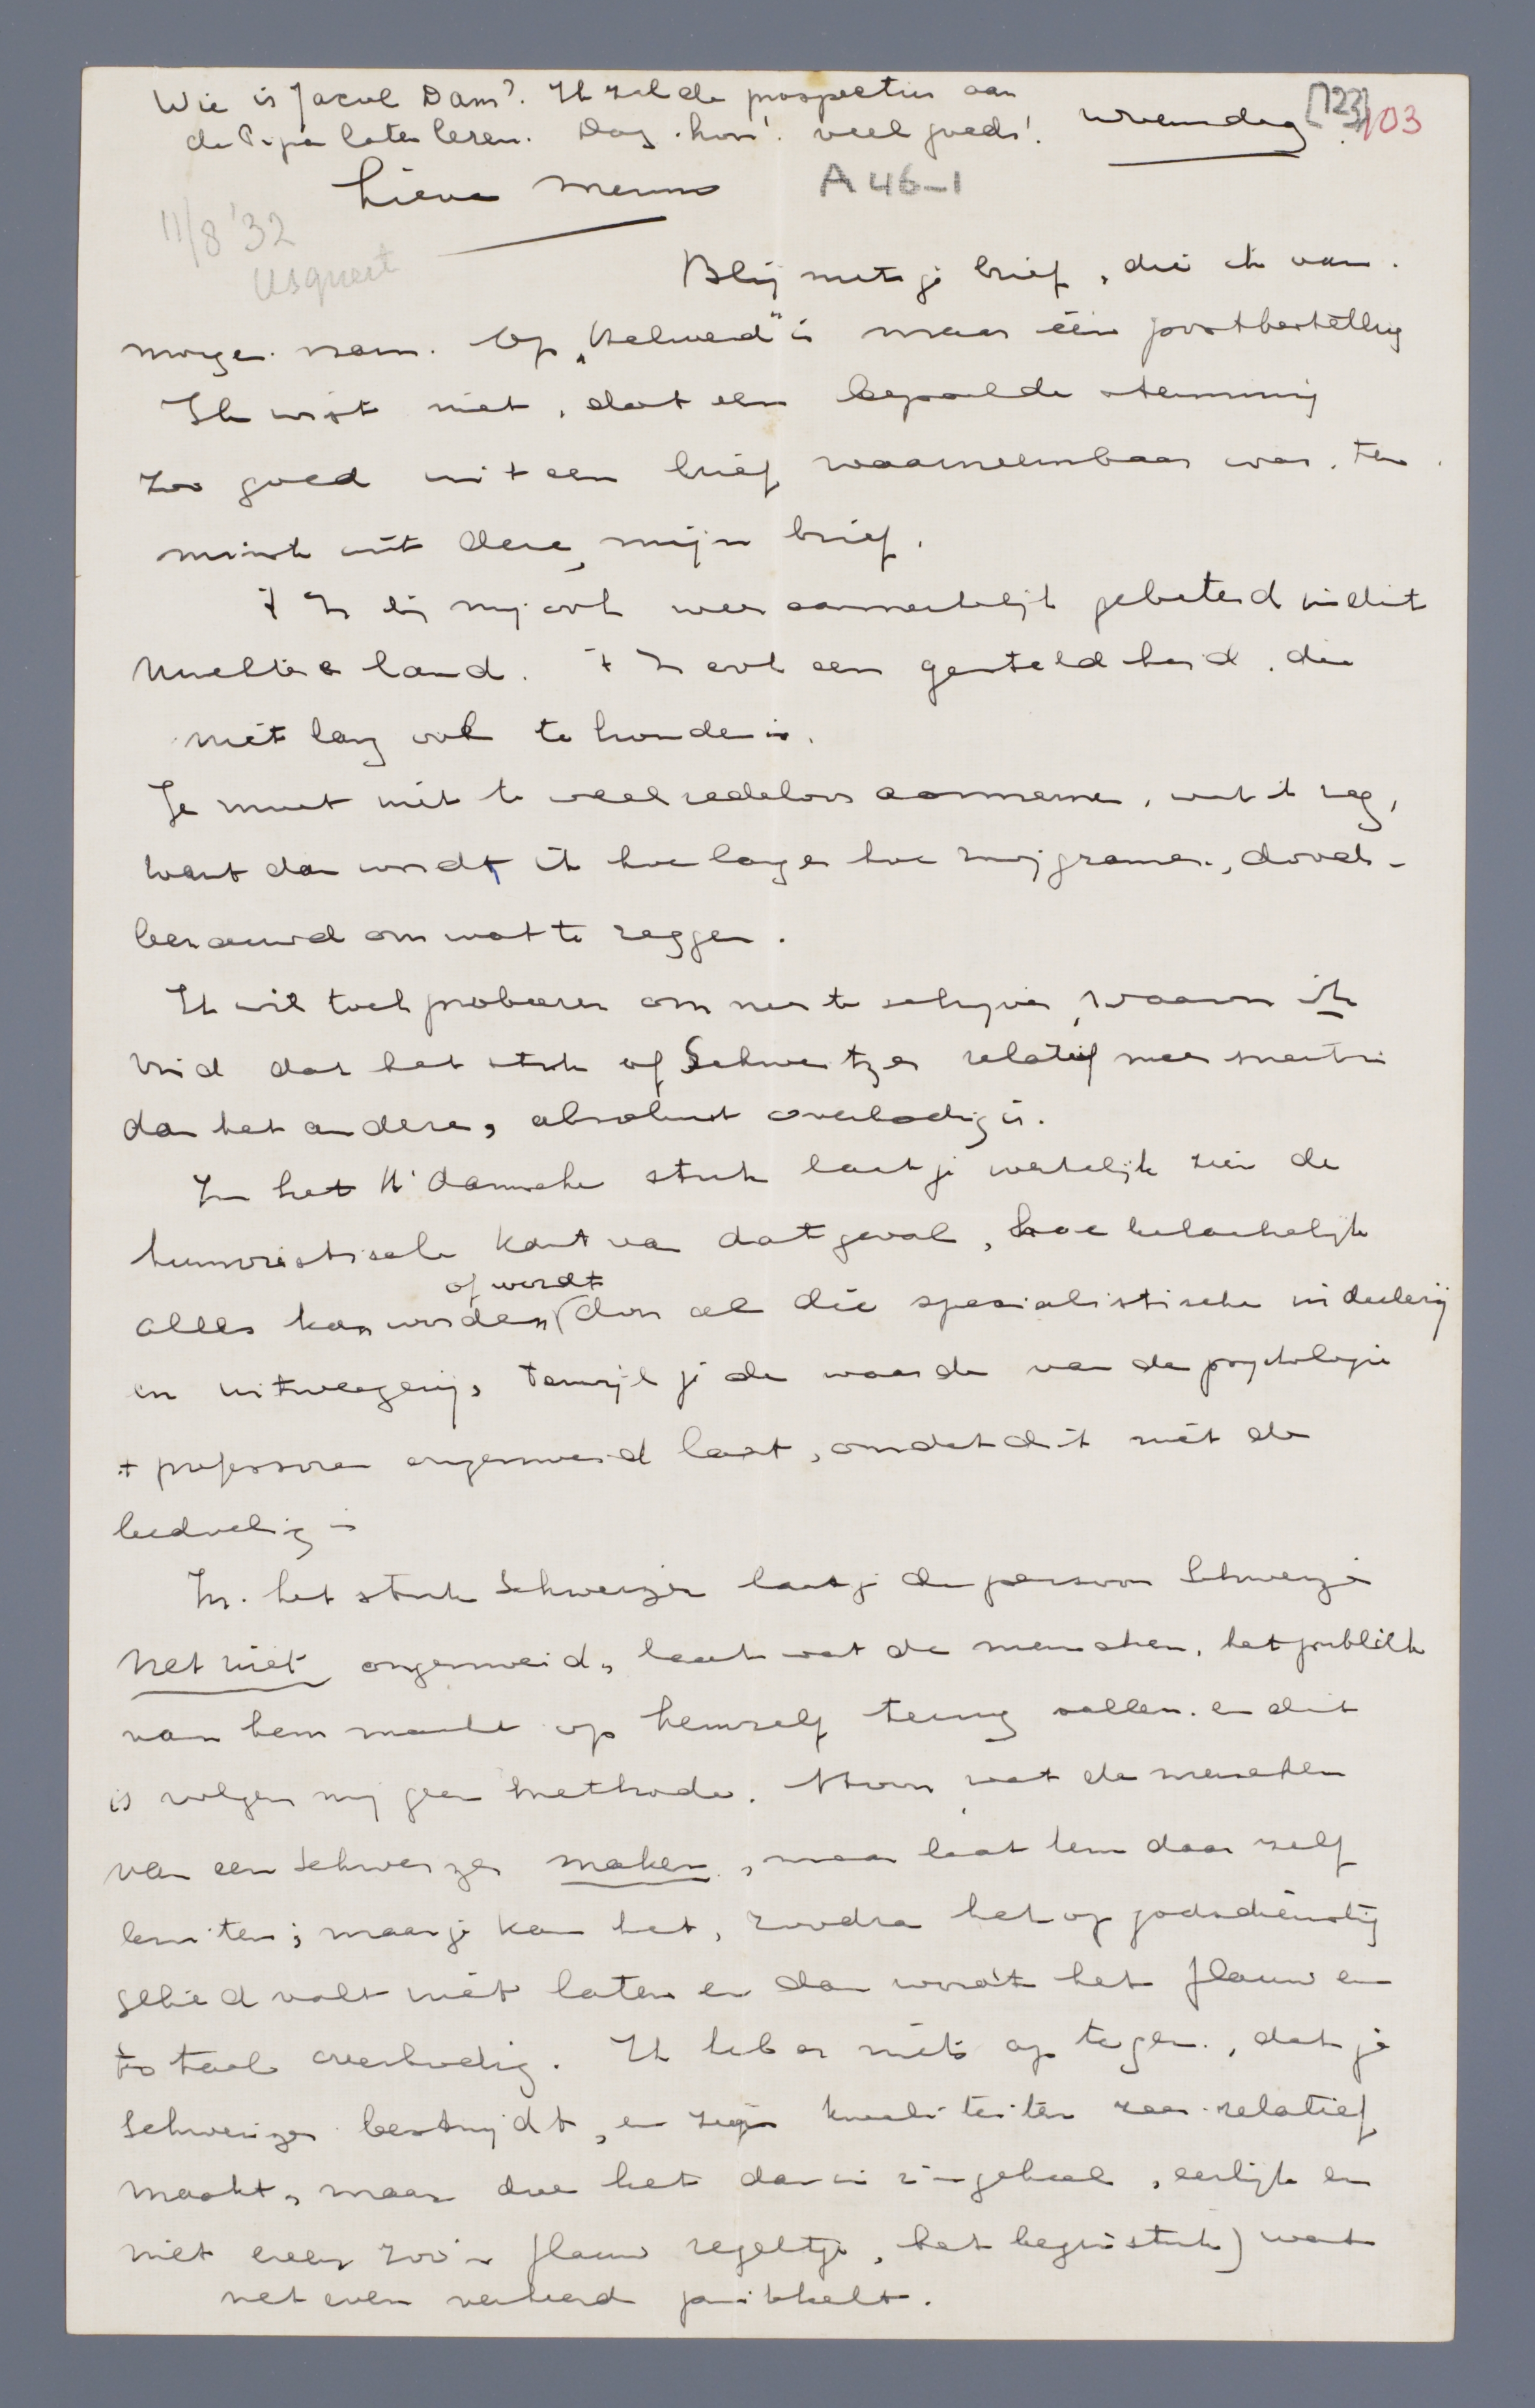 Wie is Jacob Dam? Ik zal de prospectus aan
de Pipa laten lezen. Dag hoor! veel goeds!
woensdag
[123]
103
Lieve Menno
A46-1
11/8 '32
Usquert
Blij met je brief, die ik van
morgen nam. Op „Helwerd" is maar één postbestelling
Ik wist niet, dat een bepaalde stemming
zoo goed uit een brief waarneembaar was, ten
minste uit deze, mijn brief.
't Is bij mij ook weer aanmerkelijk gebeterd in dit
land. 't Is ook een gesteldheid, die
niet lang vol te houden is.
Je moet niet te veel redeloos aannemen, wat ik zeg,
want dan wordt ik hoe langer hoe zwijgzamer, doods-
benauwd om wat te zeggen.
Ik wil toch probeeren om neer te schrijven, waarom ik
vind dat het stuk of Schweitzer relatief meer
dan het andere, absoluut overbodig is.
In het A'damsche stuk laat je werkelijk zien de
humoristische kant van dat geval, hoe belachelijk
of wordt
alles kan worden, (door al die specialistische indeelerij
en uitweegerij, terwijl je de waarde van de psychologie
+ professoren ongemoeid laat, omdat dit niet de
bedoeling is
In het stuk Schweizer laat je de persoon Schweizer
net niet ongemoeid, laat wat de menschen, het publiek
van hem maakt op hemzelf terug vallen en dit
is volgens mij geen methode. Hoon wat de menschen
van een Schweizer maken, maar laat hem daar zelf
buiten; maar je kan het, zoodra het op godsdienstig
gebied valt niet laten en dan wordt het flauw en
totaal overbodig. Ik heb er niets op tegen, dat je
Schweizer bestrijdt, en zijn kwaliteiten zeer relatief
maakt, maar doe het dan in z'n geheel, eerlijk en
niet even zoo'n flauw regeltje, (het begin stuk) wat
net even verkeerd prikkelt.